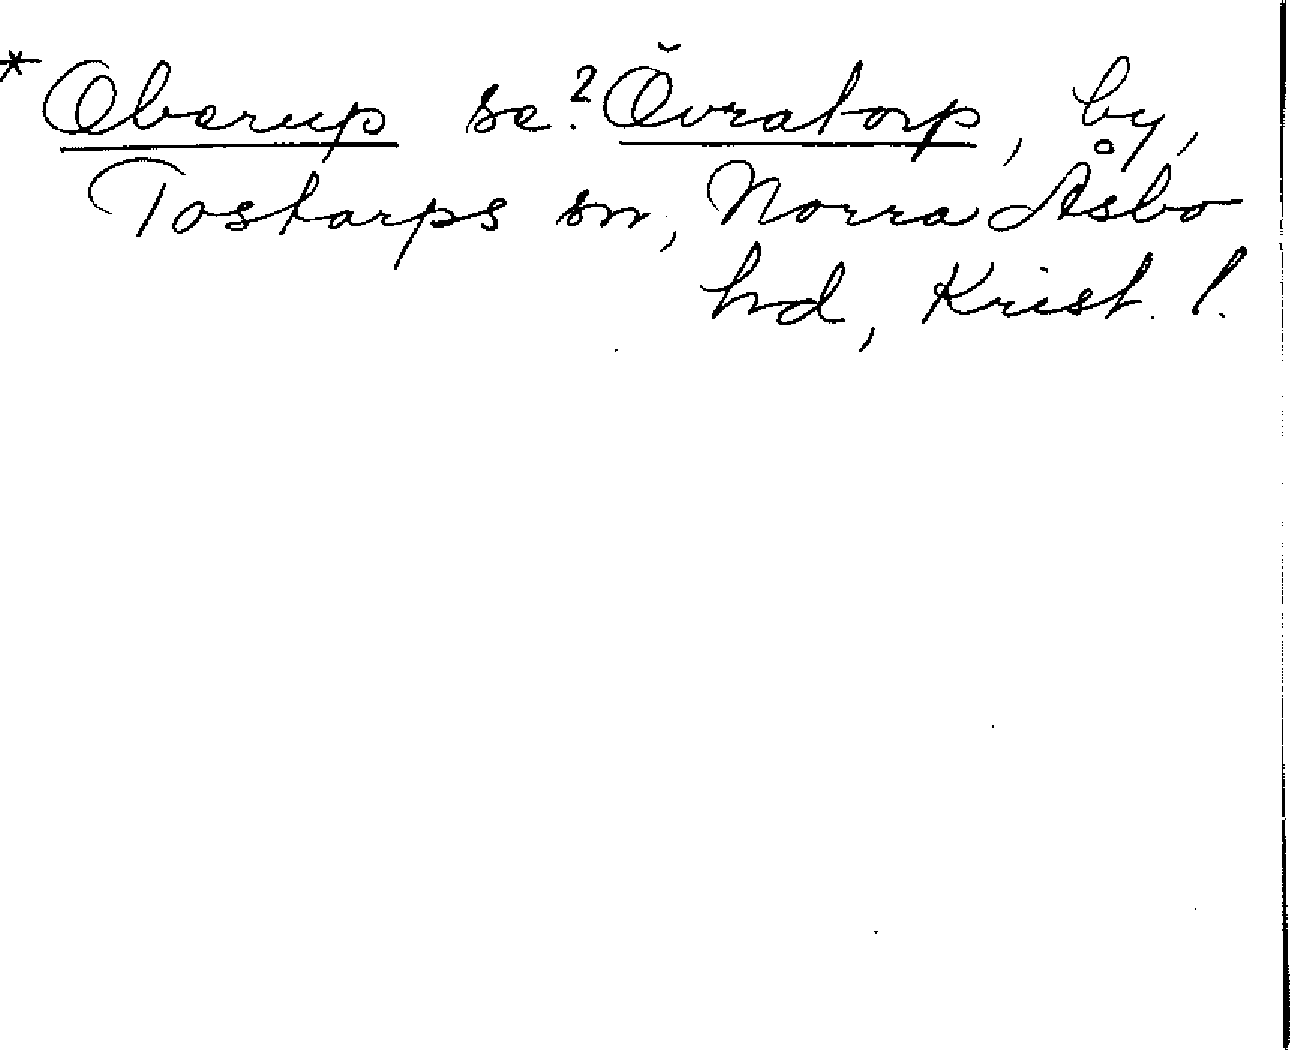 * Oberup se? Övratorp, by,
Tostarps sn, Norra Åsbo
hd, Krist. l.